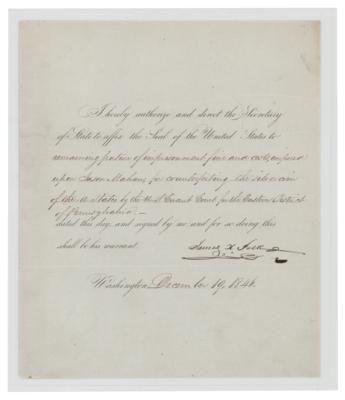 I hereby authorize and direct the Secretary
of State to affix the Seal of the United States to
remaining portion of imprisonment fine and costs imposed
upon Jason Mahan, for counterfeiting the silver coin
of the U. States by the U.S. Circuit Court for the Eastern District
of Pennsylvania. —
dated this day, and signed by me and for so doing this
shall be his warrant.
James K. Polk
Washington, December 19, 1846.